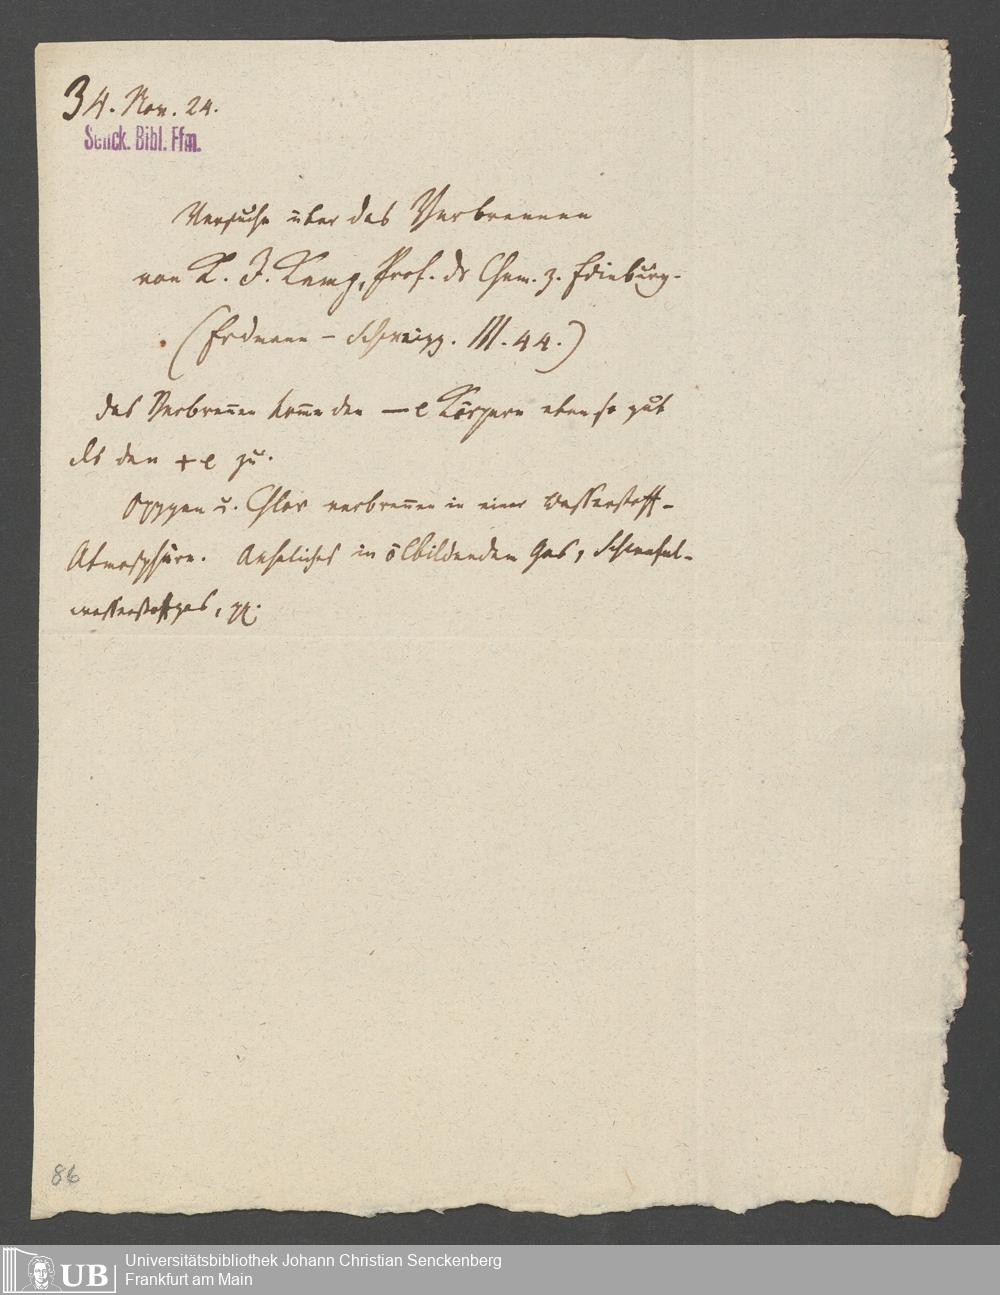 34. Nov. 24.
Senck. Bibl. Ffm.
Versuche über das Verbrennen
von K. J. Kemp, Prof. dr Chem. z. Edinburg.
(Erdmann - Schweigg. III. 44.)
das Verbreñen kom̃e den — e Körpern eben so gut
als den + e zu.
Oxygen u. Chlor verbreñen in einer Wasserstoff-
Atmosphäre. Aehnliches in ölbildendem Gas, Schwefel-
wasserstoffgas, pp.
86
UB
Universitätsbibliothek Johann Christian Senckenberg
Frankfurt am Main